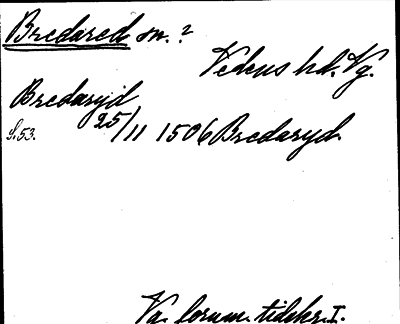 Bredared sn.?
Vedens hd. Vg.
Bredaryd
S. 53. 25/11 1506 Bredaryd.
Vg. fornm. tidskr. I.